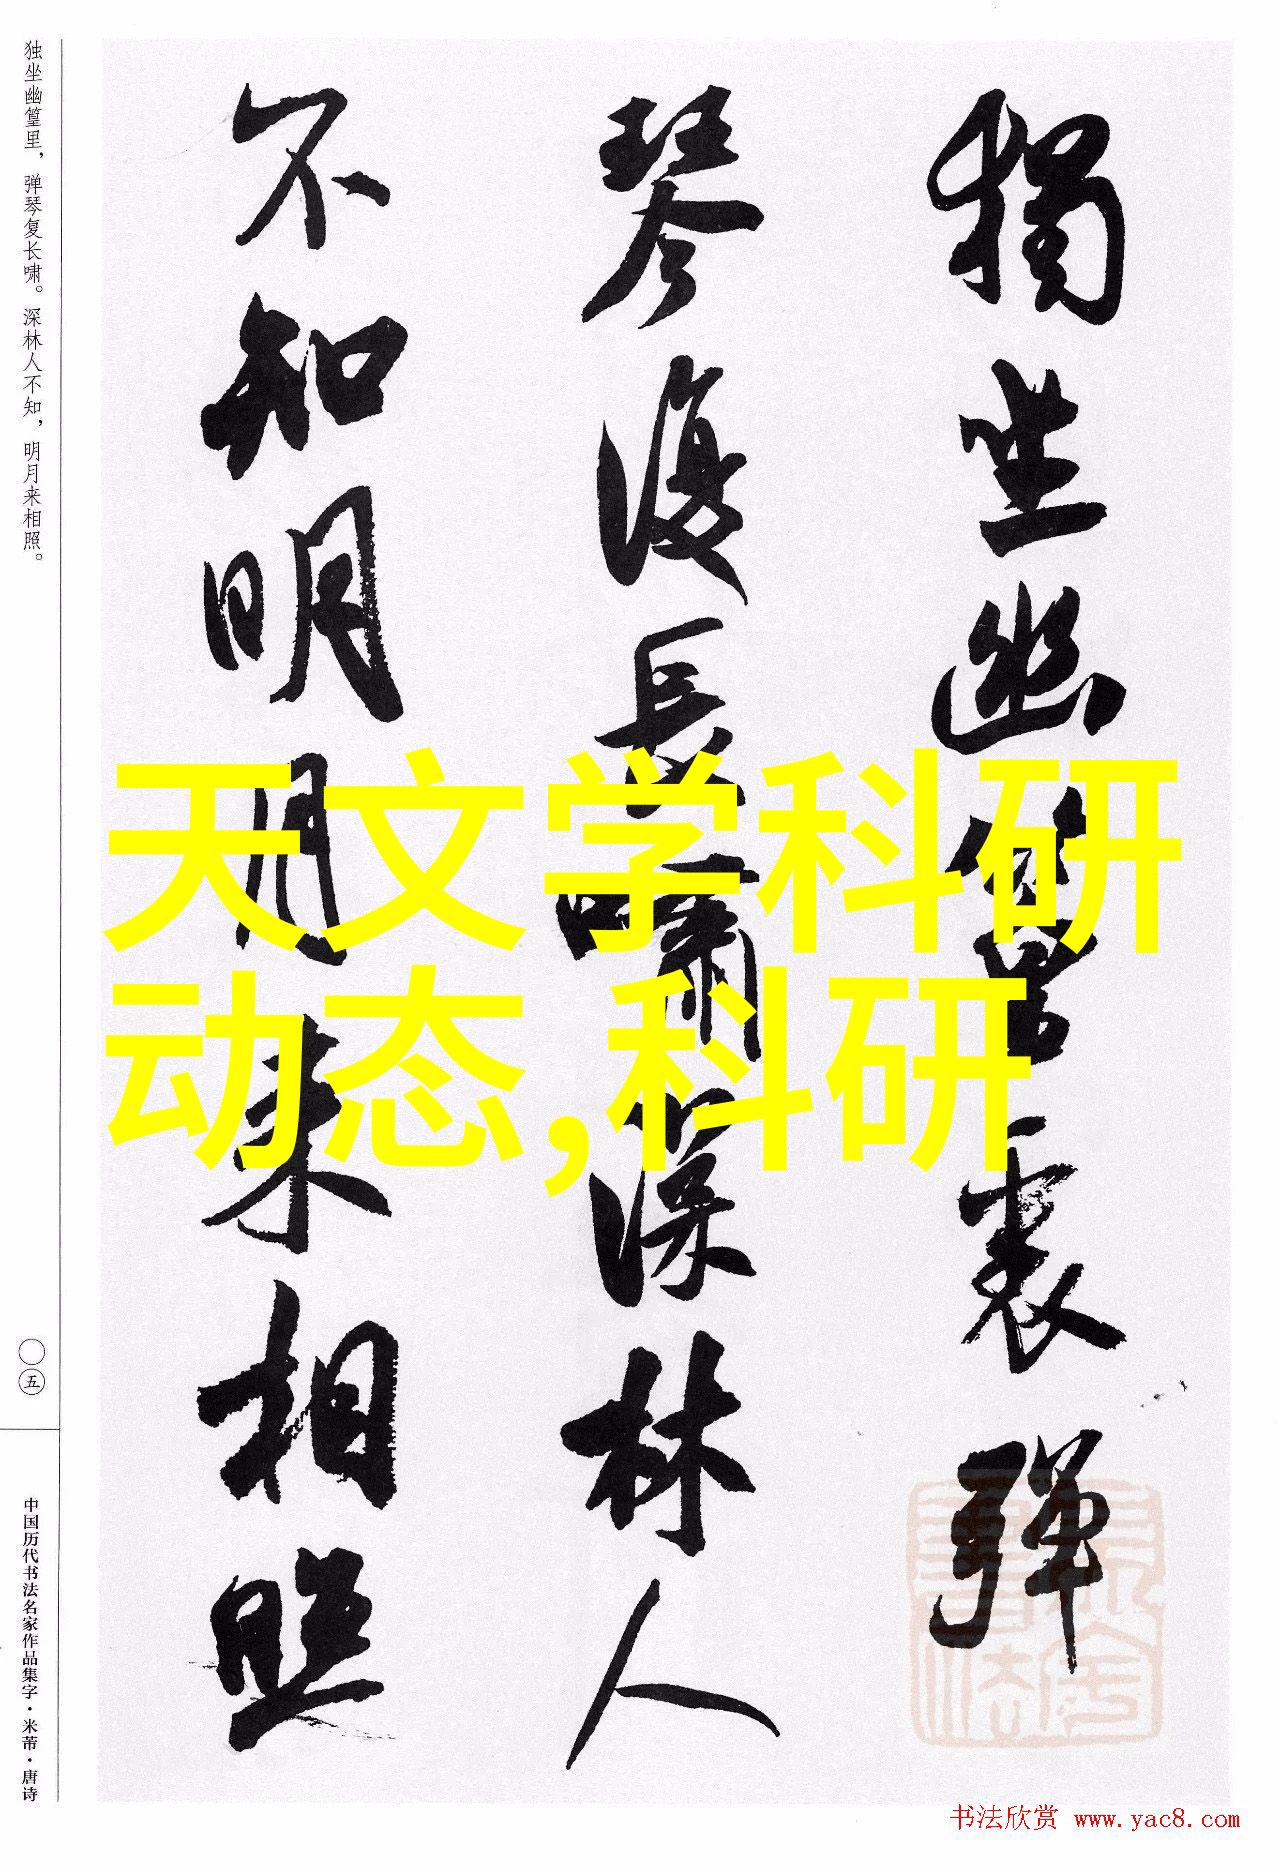 獨坐幽篁裏彈
琴復長嘯深林人
不知明月来相照
天文学科研
动态,科研
独坐幽篁里，弹琴复长啸。深林人不知，明月来相照。
〇五
中国历代书法名家作品集字·米芾·唐诗
书法欣赏 www.yac8.com